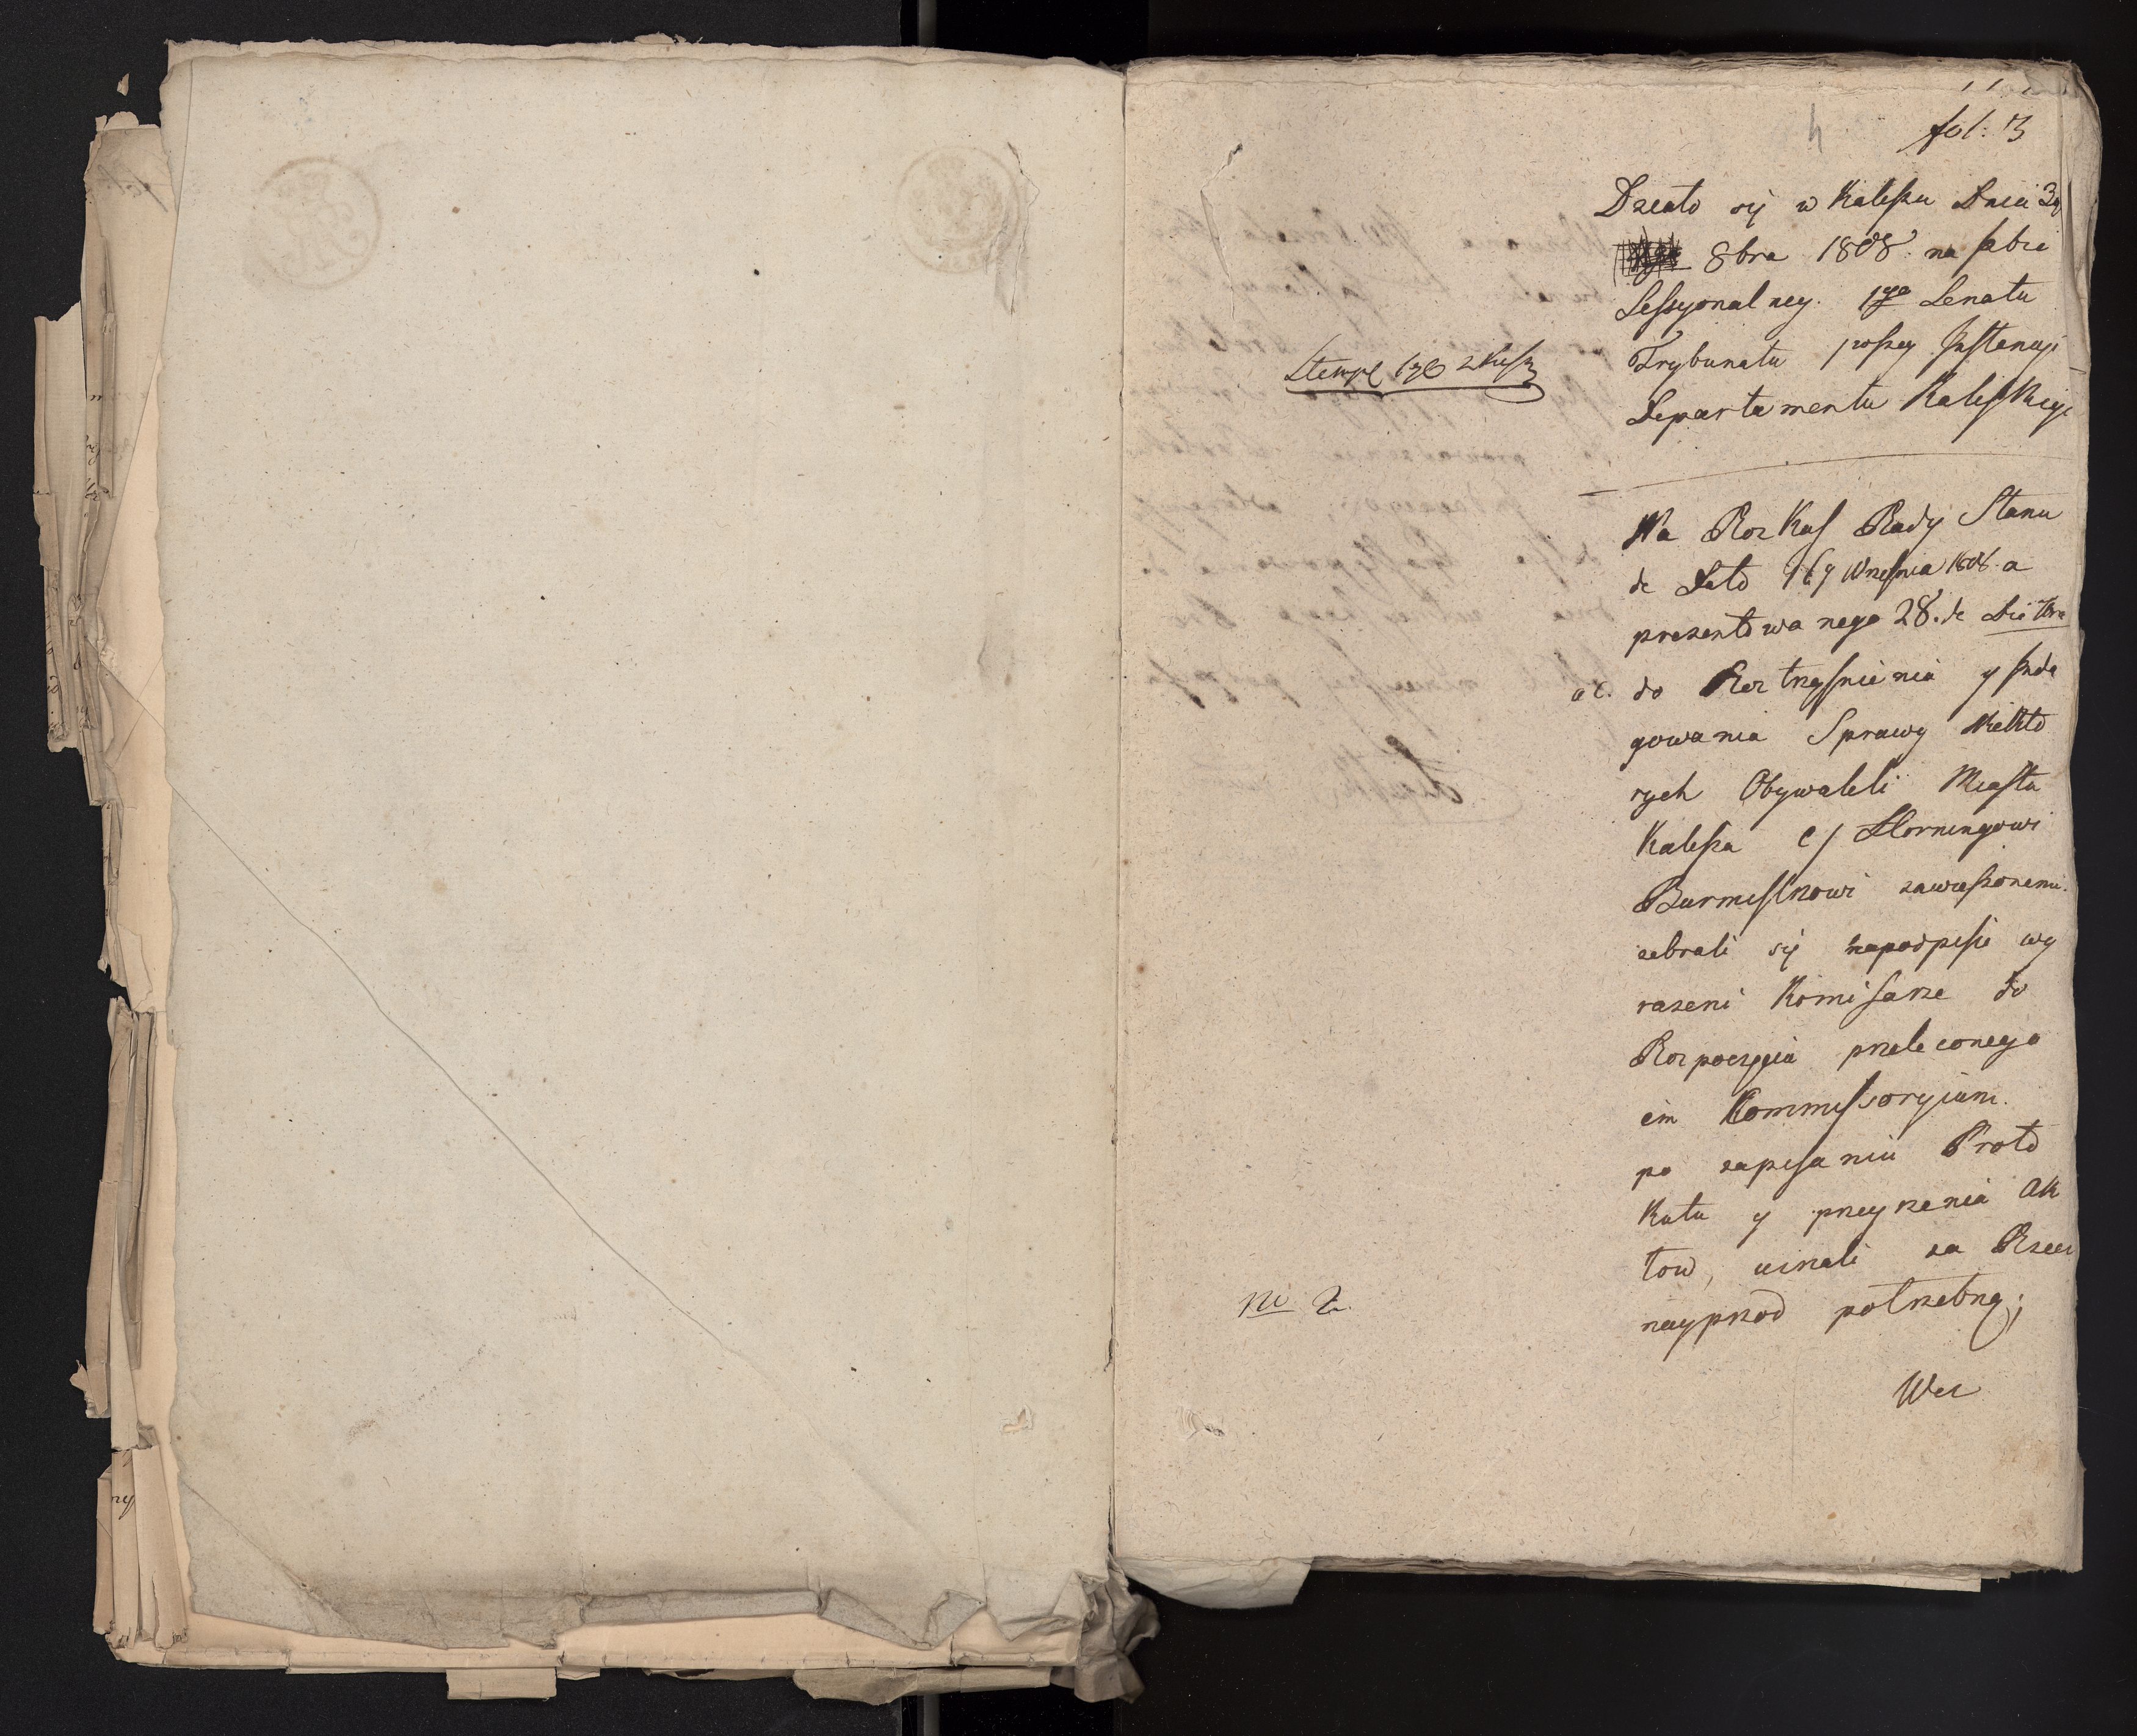 4
fol: 3
Działo się w Kaliszu Dnia 3g
8bra 1808. na Izbie
Sessyonalney. 1go Senatu
Trybunału 1wszey Instancyi
Departamentu Kaliskiego
Stempl
Na Rozkas Rady Stanu
de Dato 16 Września 1808. a
prezentowanego 28. de
ac. do Roztrząśnienia y Inda
gowania Sprawy Niektó
rych Obywateli Miasta
Kalisza c/ Hornungowi
Burmistrzowi zawieszonemu.
zebrali się napodpisie wy
rażeni Komisarze do
Rozpoczęcia przeleconego
im Kommissoryium.
po zapisaniu Proto
kułu y przeyrzeniu Ak
tow, uznali za Rzecz
nayprzod potrzebną;
No 2.
Wez